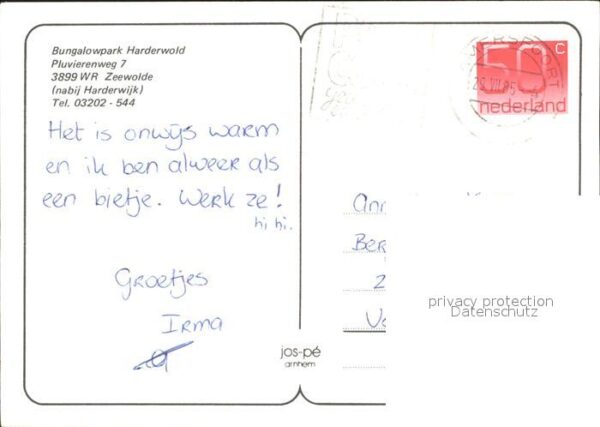 Bungalowpark Harderwold
Pluvierenweg 7
3899 WR Zeewolde
(nabij Harderwijk)
Tel. 03202 - 544
Het is onwijs warm
en ik ben alweer als
een bietje. Werk ze!
hi hi.
Groetjes
Irma
jos-pé
arnhem
50 c
nederland
Ann
Ber
2
privacy protection
Datenschutz